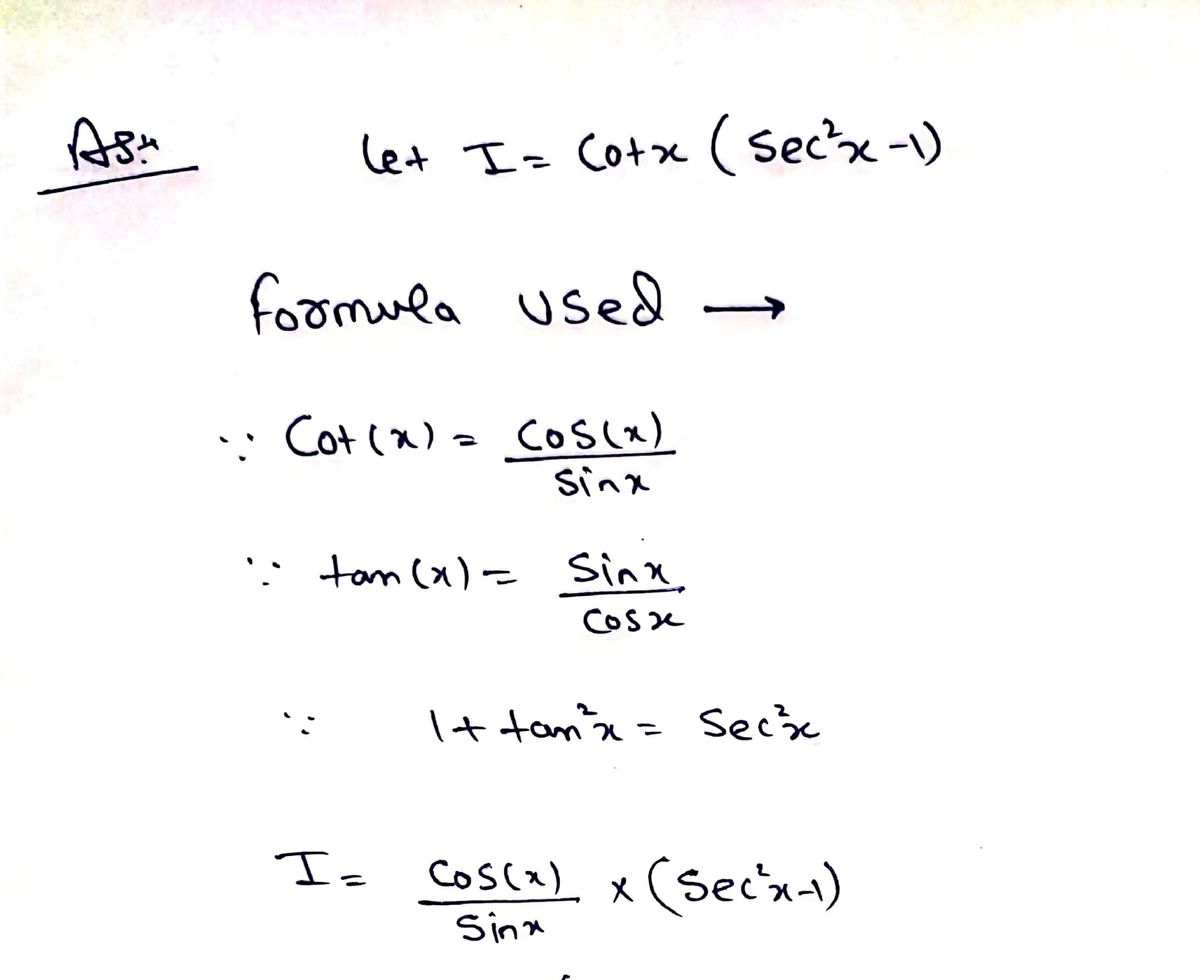 let I = Cotx ( Sec²x -1)
formula used →
∵ Cot(x) = Cos(x)/Sinx
∵ tan(x) = Sinx/Cosx
∵ 1+ tan²x = Sec²x
I = Cos(x)/Sinx × (Sec²x-1)